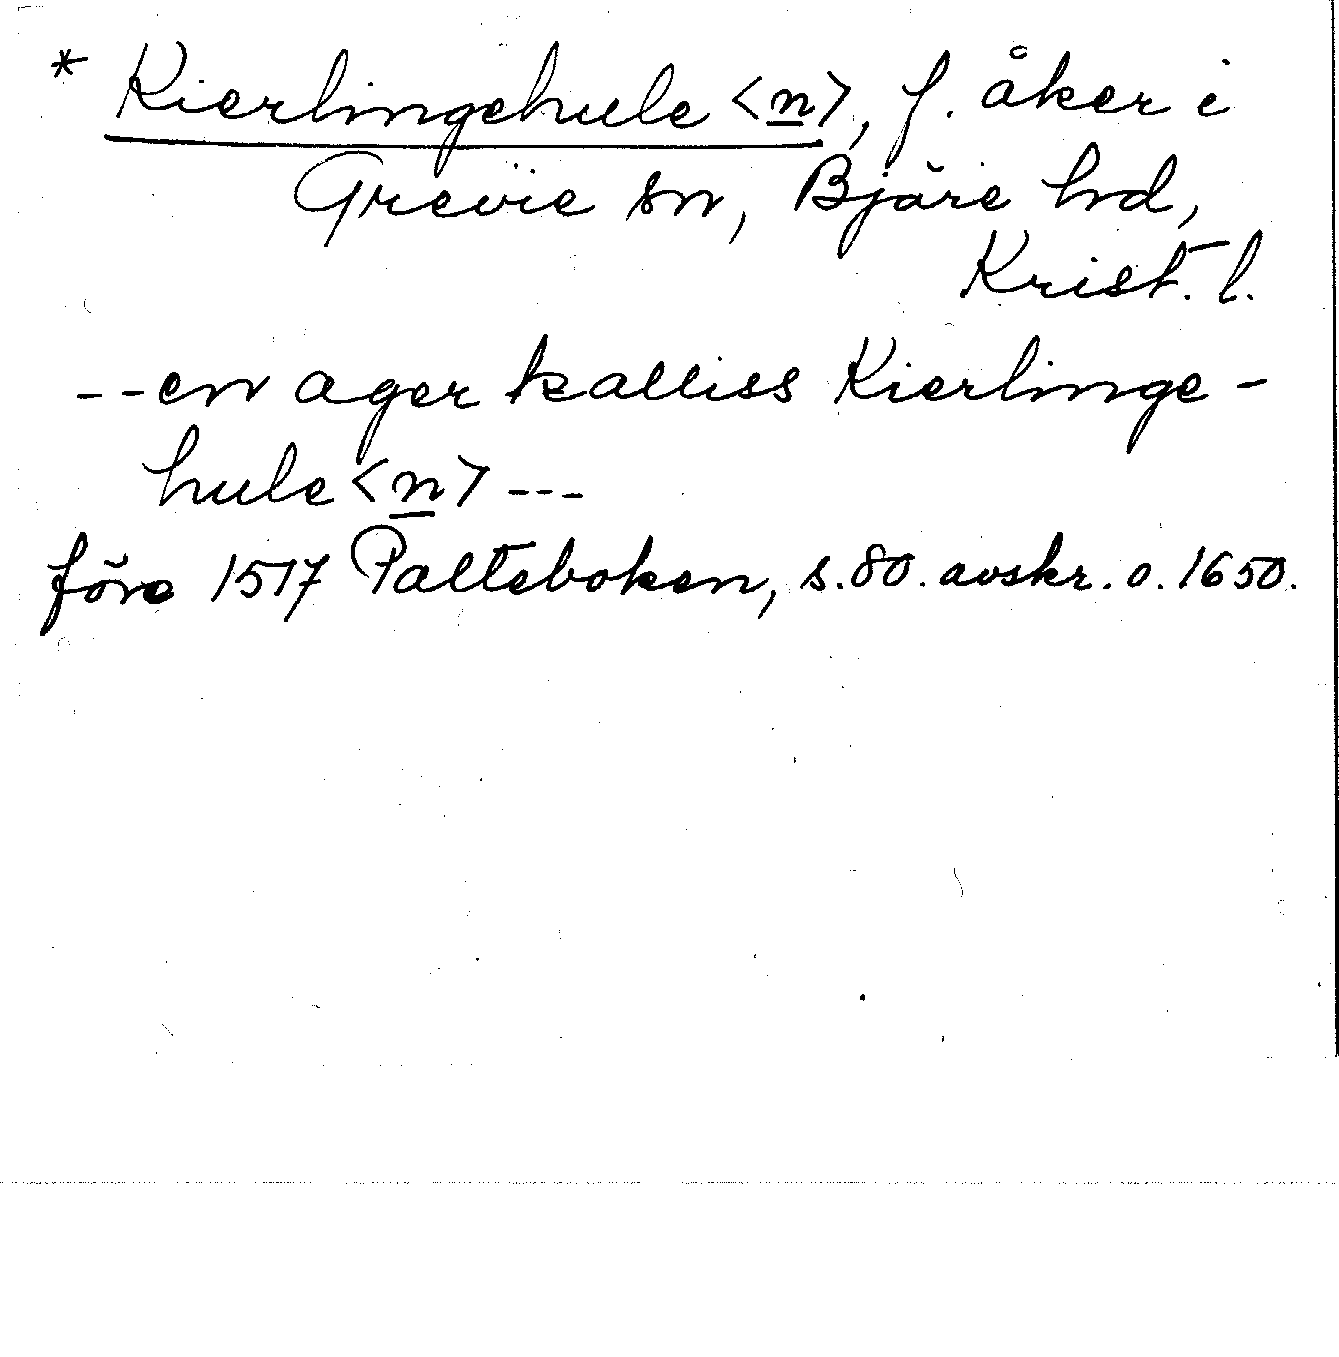 * Kierlingehule <n>, f. åker i
Grevie sn, Bjäre hd,
Krist. l.
--en ager kalliss Kierlinge-
hule <n> ---
före 1517 Palteboken, s. 80. avskr. o. 1650.